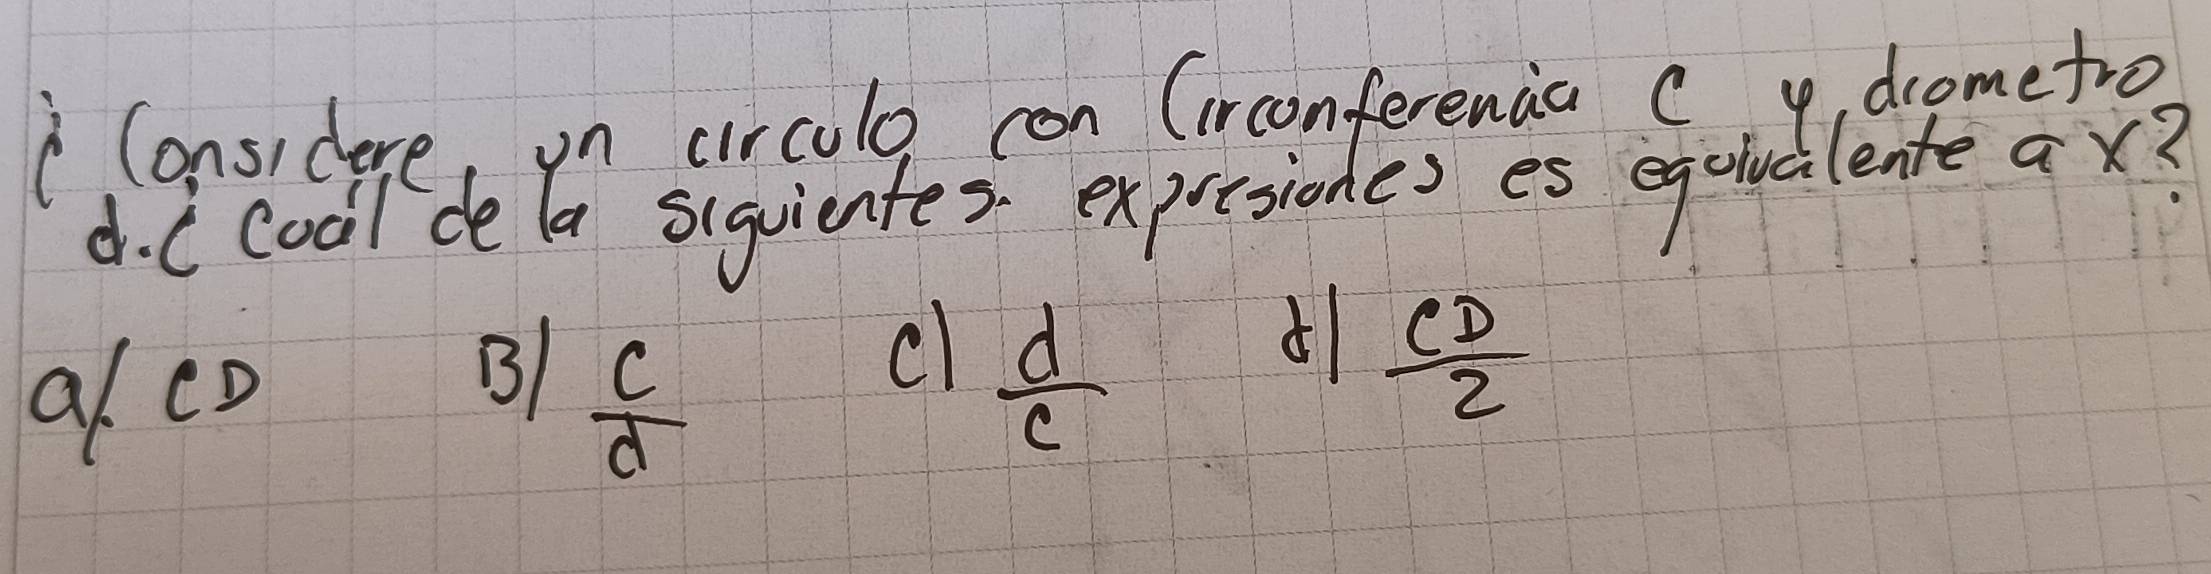 ¿ Considere, un circulo con Circonferencia C y diometro
d. ¿ Cuál de la siguientes. expresiones es equivalente a x?
a). CD B) C/d c) d/c d) CD/2